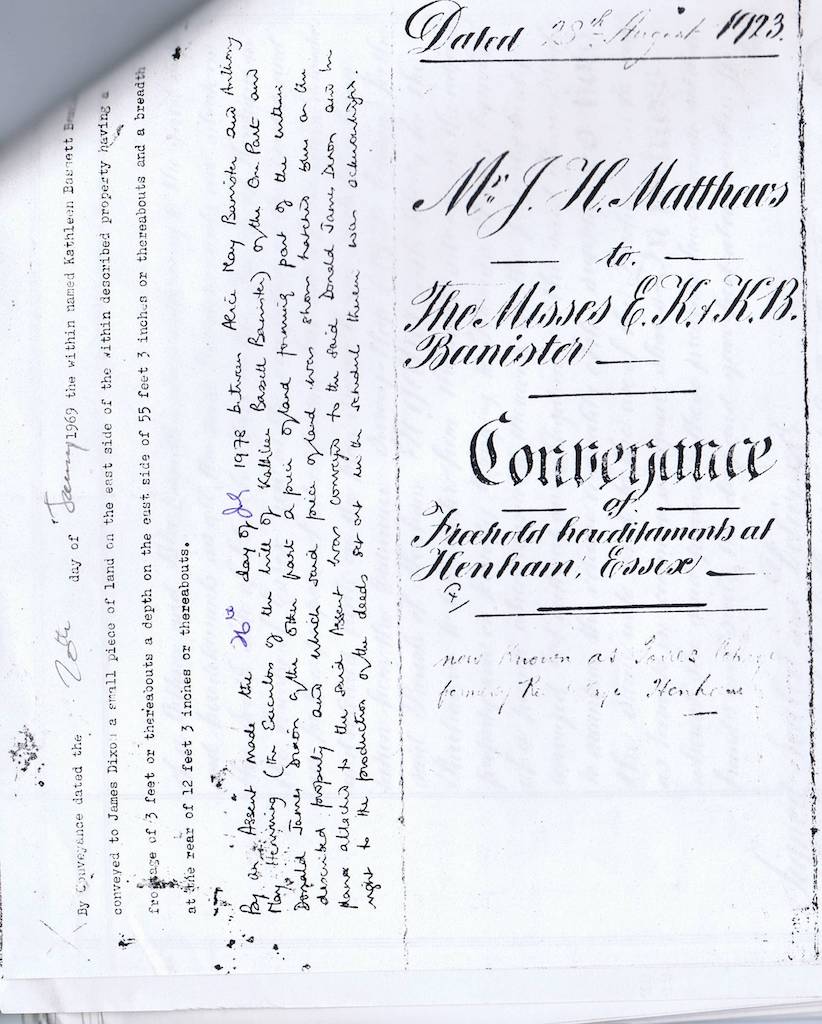 Dated 28th August 1923.
Mr. J. H. Matthews
to.
The Misses E. K. & K. B.
Banister
Conveyance
of
Freehold hereditaments at
Henham, Essex
now known as
formerly Henham
By Conveyance dated the 20th day of January 1969 the within named Kathleen Bassett
conveyed to James Dixon a small piece of land on the east side of the within described property having a
frontage of 3 feet or thereabouts a depth on the east side of 55 feet 3 inches or thereabouts and a breadth
at the rear of 12 feet 3 inches or thereabouts.
By an Assent made the 26th day of July 1978 between Alice May Banister and Anthony
May (the Executors of the will of Kathleen Bassett Banister) of the One Part and
Donald James Dixon of the Other part a piece of land forming part of the within
described property and which said piece of land was shown hatched brown on the
plan attached to the said Assent was conveyed to the said Donald James Dixon and his
right to the production of the deeds set out in the schedule therein was acknowledged.